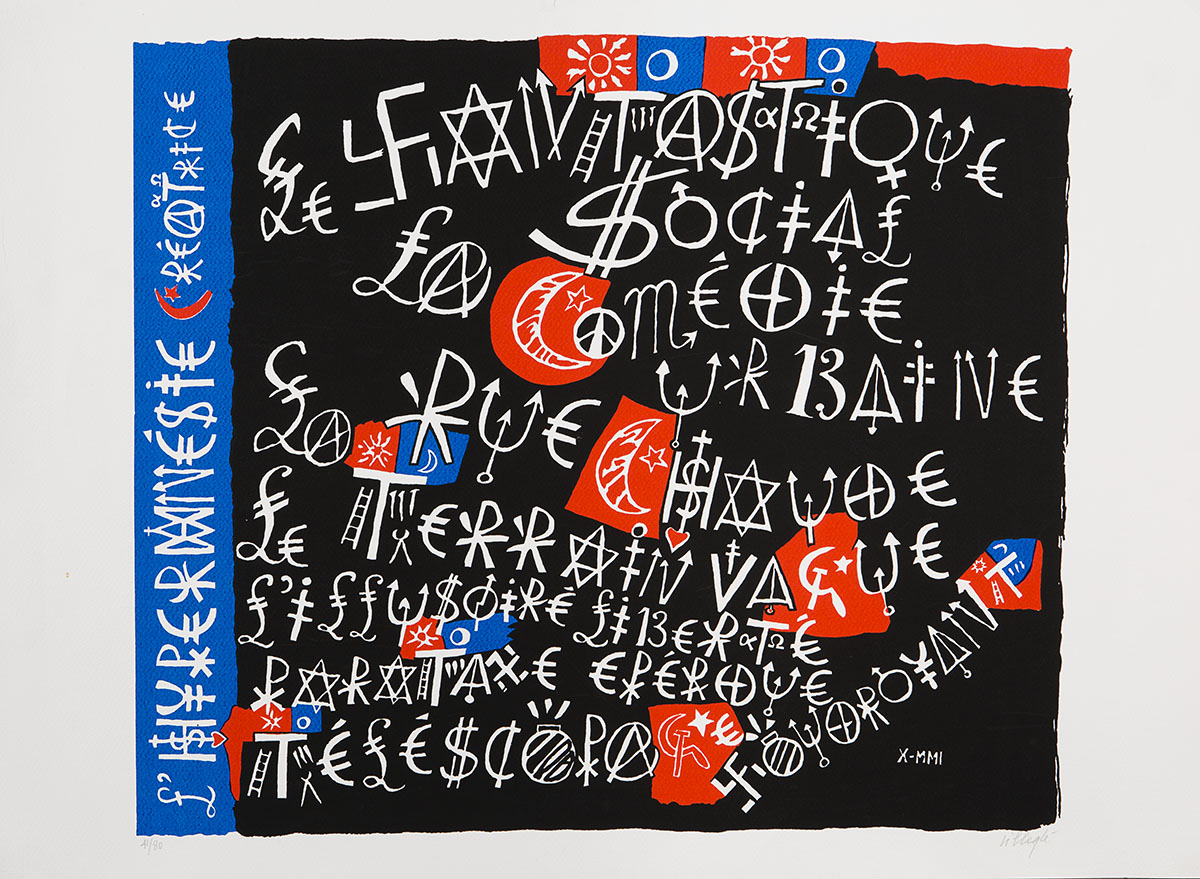 L'HYPERMNÉSIE CRÉATRICE
LE FANTASTIQUE
SOCIAL
LA COMÉDIE
URBAINE
LA RUE
CHAUDE
LE TERRAIN VAGUE
L'ILLUSOIRE LIBERTÉ
PARATAXE EPÉRDUE
TÉLÉSCOPAGE FOUDROYANT
X-MMI
Villeglé